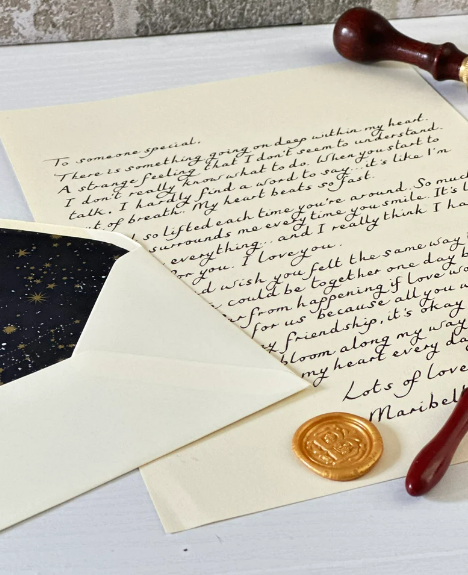 To someone special,
There is something going on deep within my heart.
A strange feeling that I don't seem to understand.
I don't really know what to do. When you start to
talk, I hardly find a word to say... it's like I'm
of breath. My heart beats so fast.
so lifted each time you're around. So much
surrounds me every time you smile. It's
everything... and I really think I
for you. I love you.
wish you felt the same way
could be together one day
from happening if love
for us because all you
friendship, it's okay
bloom along my way
my heart every
Lots of love
Maribel